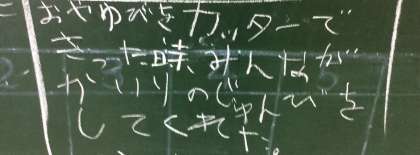 おやゆびをカッターで
きった時、みんなが
かいりのじゅんびを
してくれた。